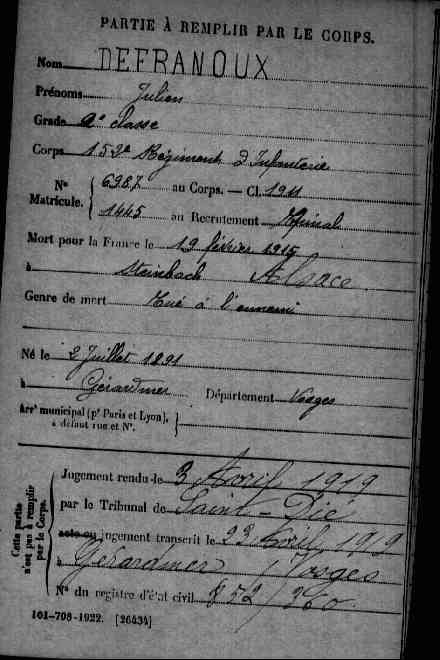 PARTIE À REMPLIR PAR LE CORPS.
Nom DEFRANOUX
Prénoms Julien
Grade 2e classe
Corps 152e Régiment d'Infanterie
Nos Matricule. { 6987 au Corps. — Cl. 1911
1445 au Recrutement Epinal
Mort pour la France le 19 février 1915
à Steinbach Alsace
Genre de mort Tué à l'ennemi
Né le 2 Juillet 1891
à Gérardmer Département Vosges
Arrt municipal (pr Paris et Lyon),
à défaut rue et No. }
Cette partie n'est pas à remplir par le Corps.
Jugement rendu le 3 Avril 1919
par le Tribunal de Saint-Dié
acte ou jugement transcrit le 23 Avril 1919
à Gérardmer / Vosges
No du registre d'état civil
101-708-1922. [26434]